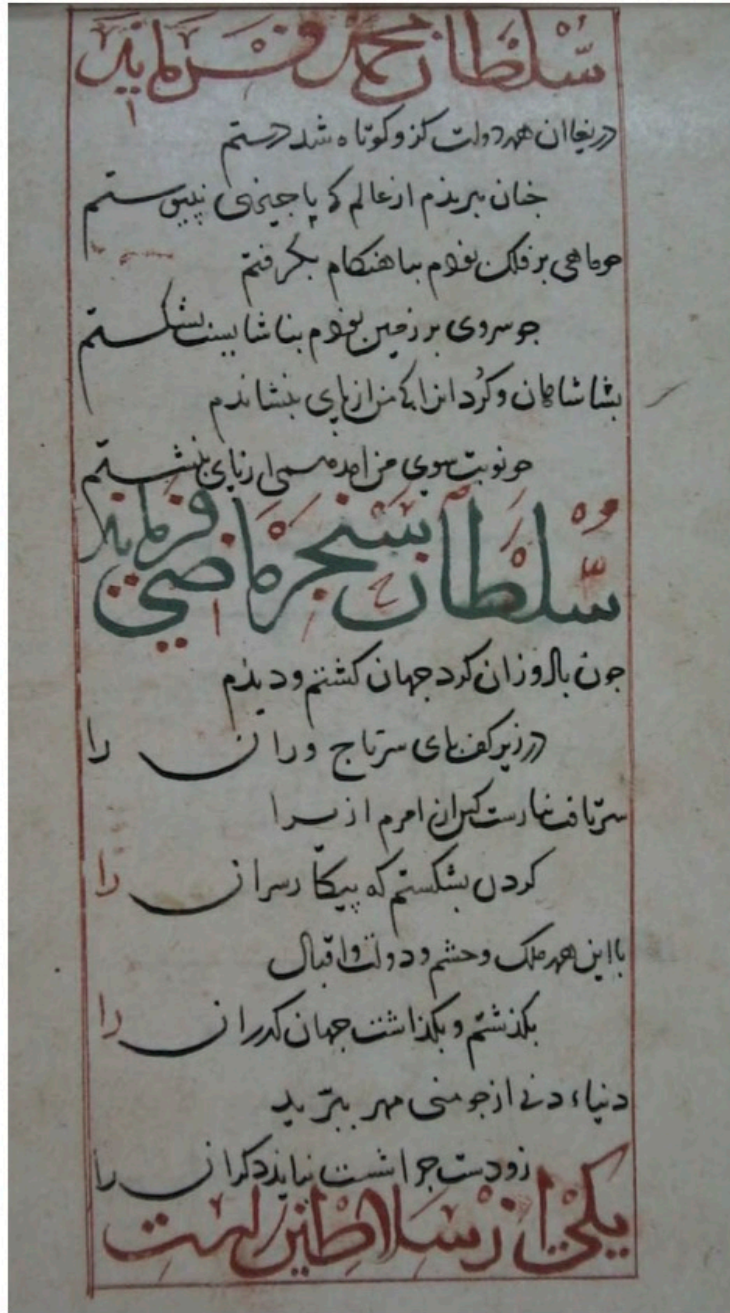 سلطان محمد فرماید
دریغا ان همه دولت کز و کوتاه شد دستم
جنان ببریذم از عالم که پا جیزی نپیوستم
جو ماهی بر فلک بوذم بناهنکام بکرفتم
جو سروی بر زمین بوذم بناشایست بشکستم
بشاشاهان و کردانرا که من از پای بنشاندم
جو نوبت سوی من امد همی از پای بنشستم
سلطان سنجر ماضی فرماید
جون باد وزان کرد جهان کشتم و دیذم
در زیر کف پای سر تاجوران را
سرتافت از امرم از یرا
کردن بشکستم که پیکار سران را
با این همه ملک و حشم و دولت و اقبال
بکذشتم و بکذاشت جهان کدران را
دنیاء دنی از جو منی مهر ببرید
زودست جرا شست نیاید دکران را
یکی از سلاطین راست